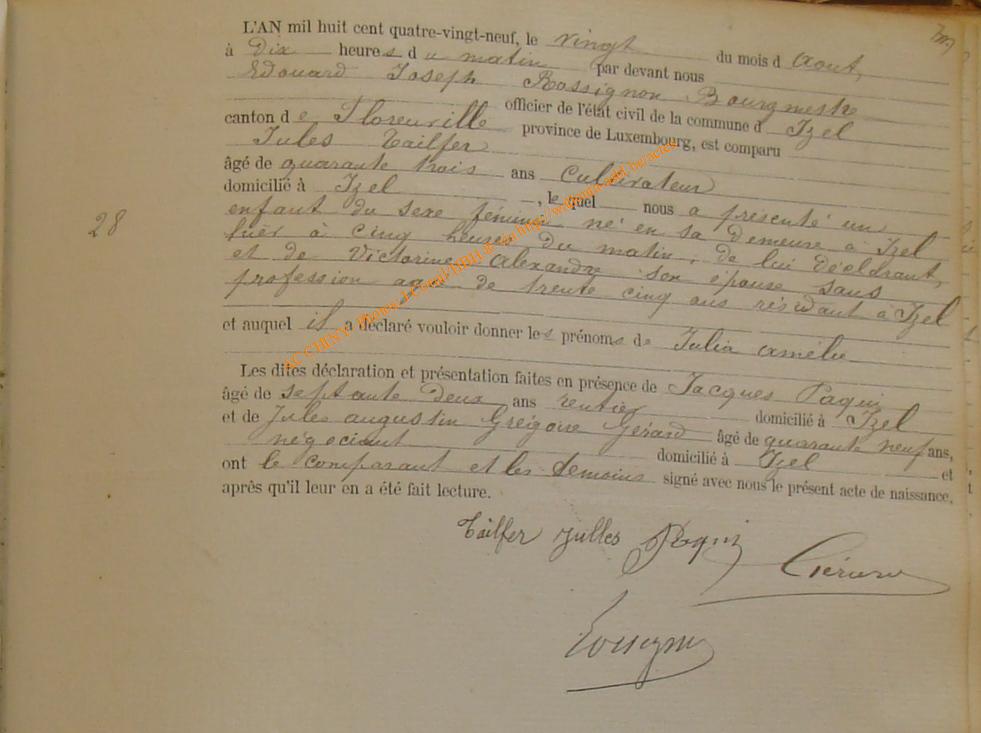 L'AN mil huit cent quatre-vingt-neuf, le vingt du mois d Aout,
à Dix heures du matin par devant nous
Edouard Joseph Rossignon Bourgmestre
officier de l'état civil de la commune d Izel
canton de Florenville province de Luxembourg, est comparu
Jules Tailfer
âgé de quarante trois ans Cultivateur
domicilié à Izel, lequel nous a présenté un
28
enfant du sexe féminin né en sa demeure à Izel
hier à cinq heures du matin, de lui déclarant,
et de Victorine Alexandre son épouse sans
profession agée de trente cinq ans résidant à Izel
et auquel il a déclaré vouloir donner les prénoms de Julia Amélie
Les dites déclaration et présentation faites en présence de Jacques Paquin
âgé de septante deux ans rentier domicilié à Izel
et de Jules Augustin Grégoire Gérard âgé de quarante neuf ans,
négociant domicilié à Izel et
ont le comparant et les témoins signé avec nous le présent acte de naissance,
après qu'il leur en a été fait lecture.
Tailfer Julles Paquin
Gérard
Rossignon